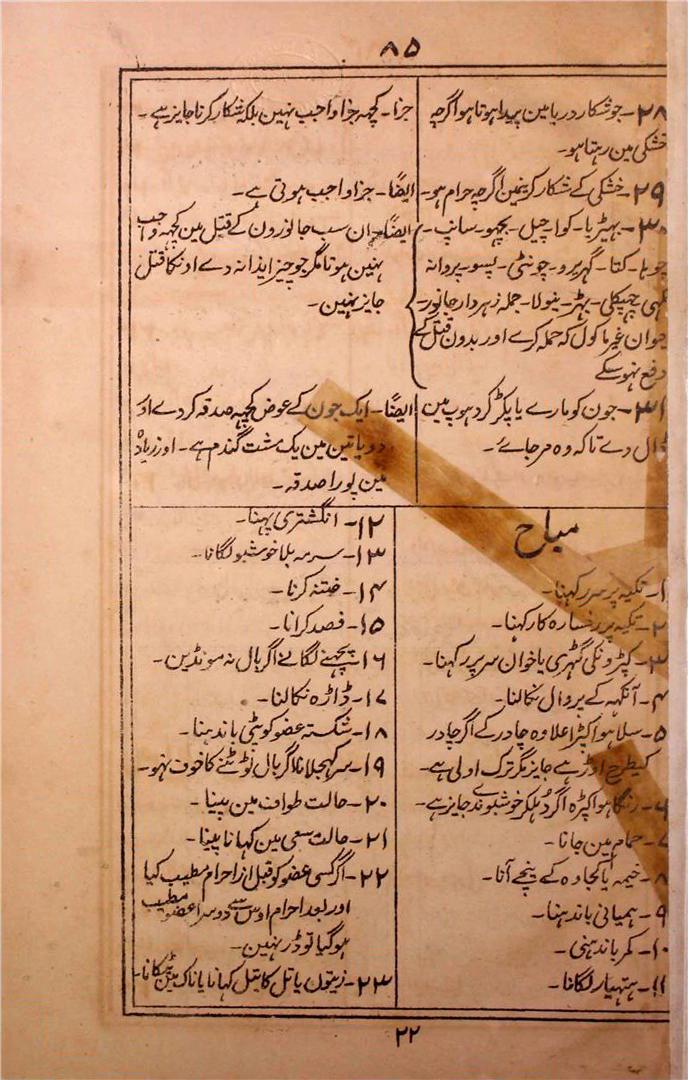 ۸۵
۲۸- جو شکار دریا مین پیدا ہوتا ہو اگرچہ
خشکی مین رہتا ہو-
۲۹- خشکی کے شکار کرنیمین اگرچہ حرام ہو-
۳۰- بہیڑیا- کوا- چیل- بچھو- سانپ-
چوہا- کتا- گہریرو- چونٹی- پسو- پروانہ
مکہی- چھپکلی- بہڑ- نیولا- جملہ زہردار جانور-
حیوان غیر ماکول کہ حملہ کرے اور بدون قتل کے
دفع نہوسکے
۳۱- جون کو مارے یا پکڑ کر دہوپ مین
ڈال دے تاکہ وہ مرجائے-
جزا- کچہہ جزا واجب نہین بلکہ شکار کرنا جایز ہے-
ایضًا- جزا واجب ہوتی ہے-
ایضًا- ان سب جانورون کے قتل مین کچہہ واجب
نہین ہوتا مگر جو چیز ایذا نہ دے اونکا قتل
جایز نہین-
ایضًا- ایک جون کے عوض کچہہ صدقہ کردے اور
دو یا تین مین یک مشت گندم ہے- اور زیادہ
مین پورا صدقہ-
مباح
۱- تکیہ پر سر رکہنا-
۲- تکیہ پر رخسارہ کا رکہنا-
۳- کپڑونکی گٹھری یا خوان سر پر رکہنا-
۴- آنکہہ کے پروال نکالنا-
۵- سلا ہوا کپڑا علاوہ چادر کے اگر چادر
کیطرح اوڑہے جایز مگر ترک اولی ہے-
۶- رنگا ہوا کپڑہ اگر دُہلکر خوشبو نہ دے جایز ہے-
۷- حمام مین جانا-
۸- خیمہ یا کجاوہ کے نیچے آنا-
۹- ہمیانی باندہنا-
۱۰- کمر باندہنی-
۱۱- ہتہیار لگانا-
۱۲- انگشتری پہننا-
۱۳- سرمہ بلا خوشبو لگانا-
۱۴- ختنہ کرنا-
۱۵- فصد کرانا-
۱۶- پچہنے لگانے اگر بال نہ مونڈین-
۱۷- ڈاڑہ نکالنا-
۱۸- شکستہ عضو کو پٹی باندہنا-
۱۹- سر کہجلانا اگر بال ٹوٹنے کا خوف نہو-
۲۰- حالت طواف مین پینا-
۲۱- حالت سعی مین کہانا پینا-
۲۲- اگر کسی عضو کو قبل از احرام مطیب کیا
اور بعد احرام اوس سے دوسرا عضو مطیب
ہوگیا تو ڈر نہین-
۲۳- زیتون یا تل کا تیل کہانا یا ناک مین ٹپکانا-
۲۲